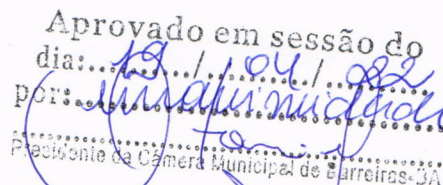 Aprovado em sessão do
dia: 19 / 04 / 022
por: unanimidade
Presidente da Câmera Municipal de Barreiras-BA